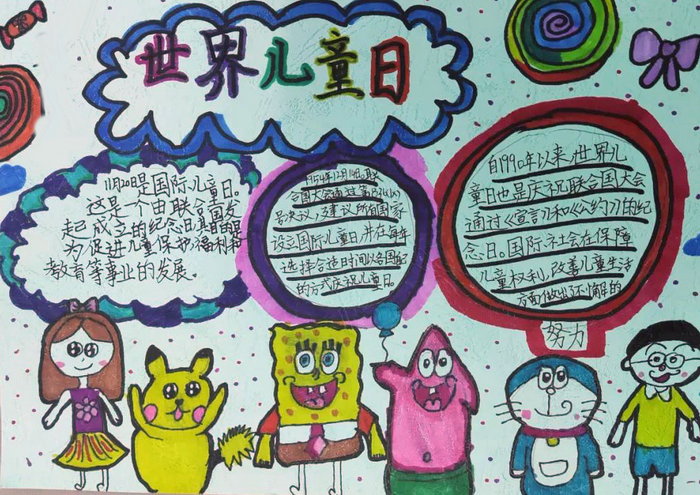 世界儿童日
11月20日是国际儿童日。
这是一个由联合国发
起成立的纪念日,其目的是
为促进儿童保护、福利和
教育等事业的发展。
1954年12月14日,联
合国大会通过第836(IX)
号决议,建议所有国家
设立国际儿童日,并在每年
选择合适时间以各国自己
的方式庆祝儿童日。
自1990年以来,世界儿
童日也是庆祝联合国大会
通过《宣言》和《公约》的纪
念日。国际社会在保障
儿童权利,改善儿童生活
方面做出了不懈的
努力